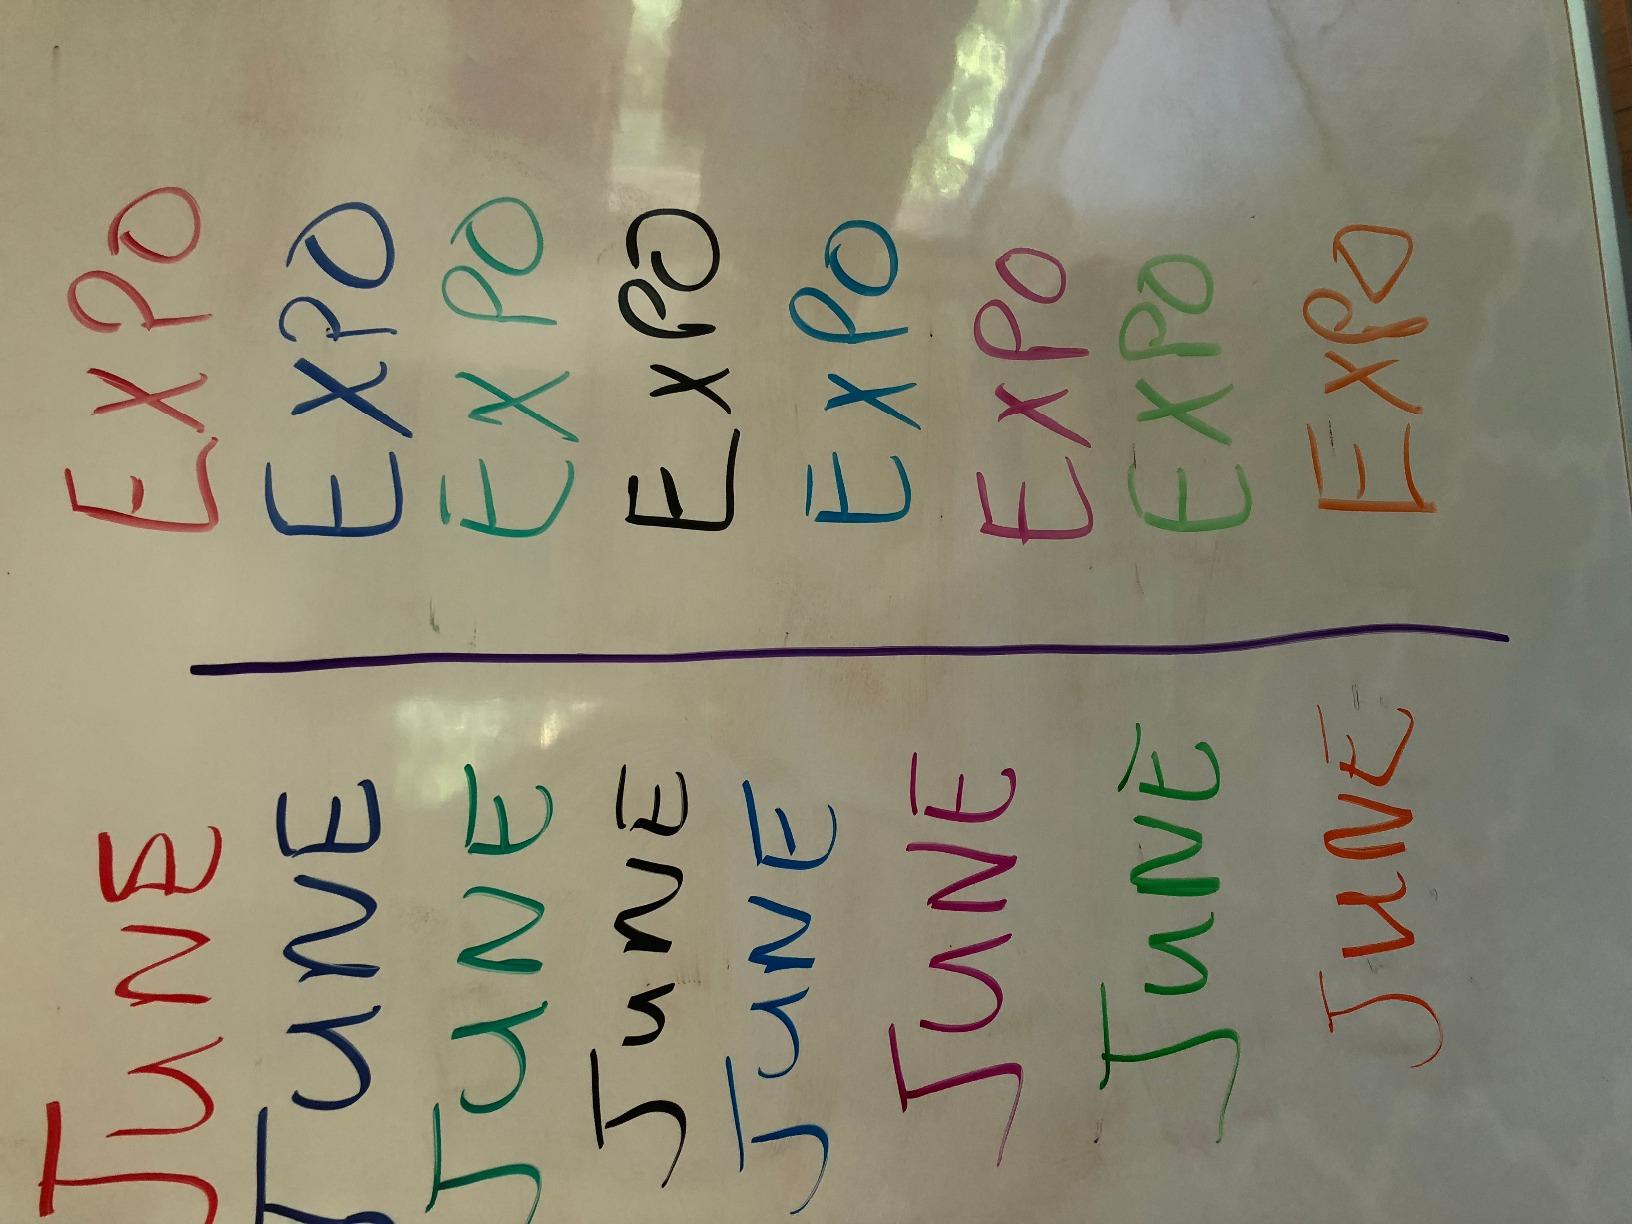 JUNE EXPO
JUNE EXPO
JUNE EXPO
JUNE EXPO
JUNE EXPO
JUNE EXPO
JUNE EXPO
JUNE EXPO